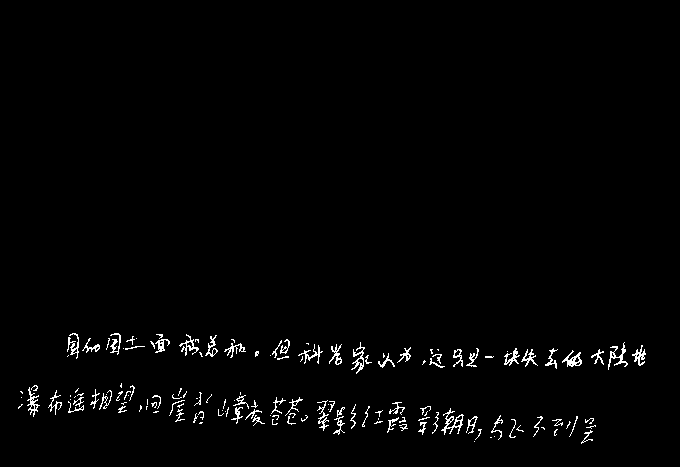 国的国土面积总和。但科学家认为，这只是一块失去的大陆地
瀑布遥相望，回崖沓嶂凌苍苍。翠影红霞影朝日，鸟飞不到吴